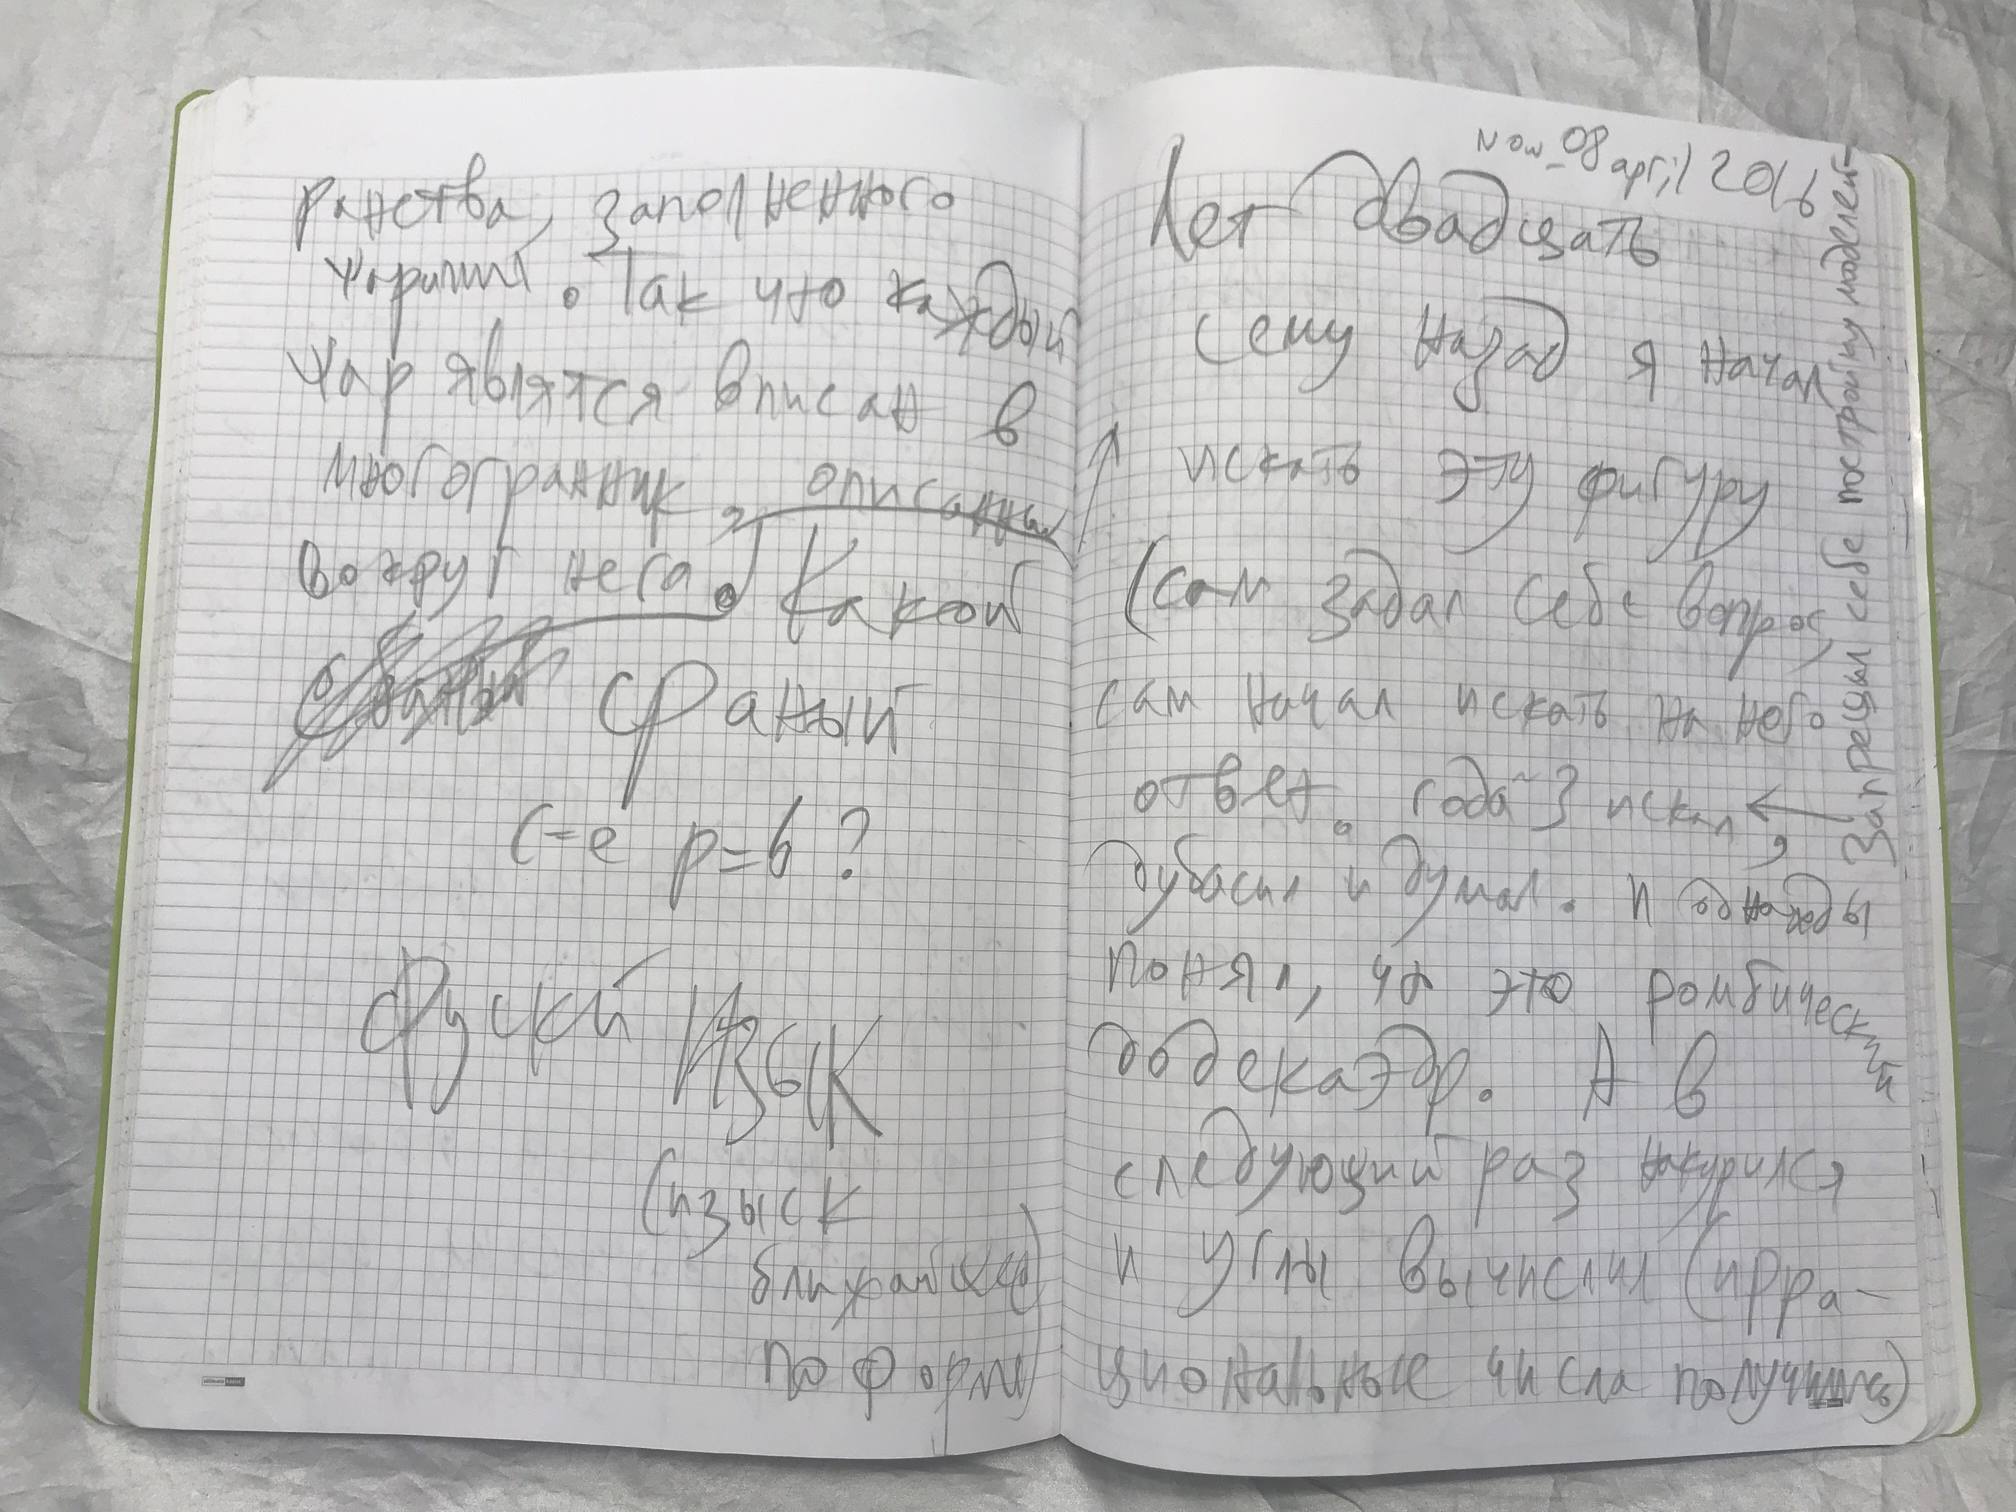 ранства, заполненного
шарами. Так что каждый
шар являтся вписан в
многогранник, описанный
вокруг него. Какой
сраный
с=е р=б?
Руский Изыск
(изыск
ближайшее)
по форме
Now_08 april 2016
Лет двадцать
сему назад я начал
искать эту фигуру
(сам задал себе вопрос,
сам начал искать на него
ответ. года 3 искал,
дубасил и думал. И однажды
понял, что это ромбический
додекаэдр. А в
следующий раз накурился
и углы вычислил (ирра-
циональные числа получились)
Запрещал себе постройку моделей